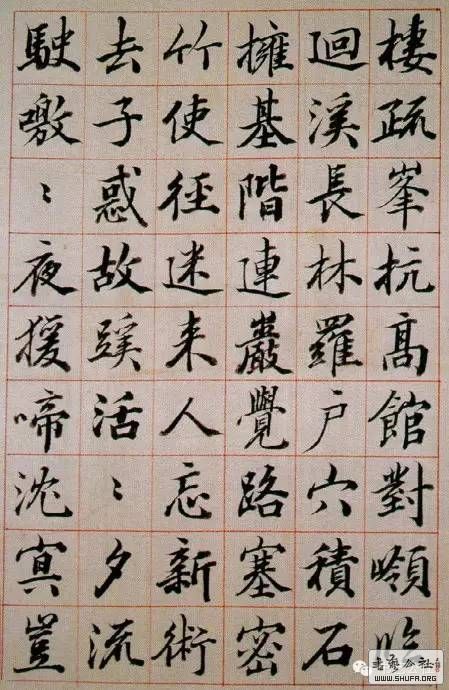 棲疏峯抗高館對嶺臨
迴溪長林羅戶穴積石
擁基階連巖覺路塞密
竹使徑迷来人忘新術
去子惑故蹊活〻夕流
駛噭〻夜猨啼沈冥豈
書藝公社
WWW.SHUFA.ORG